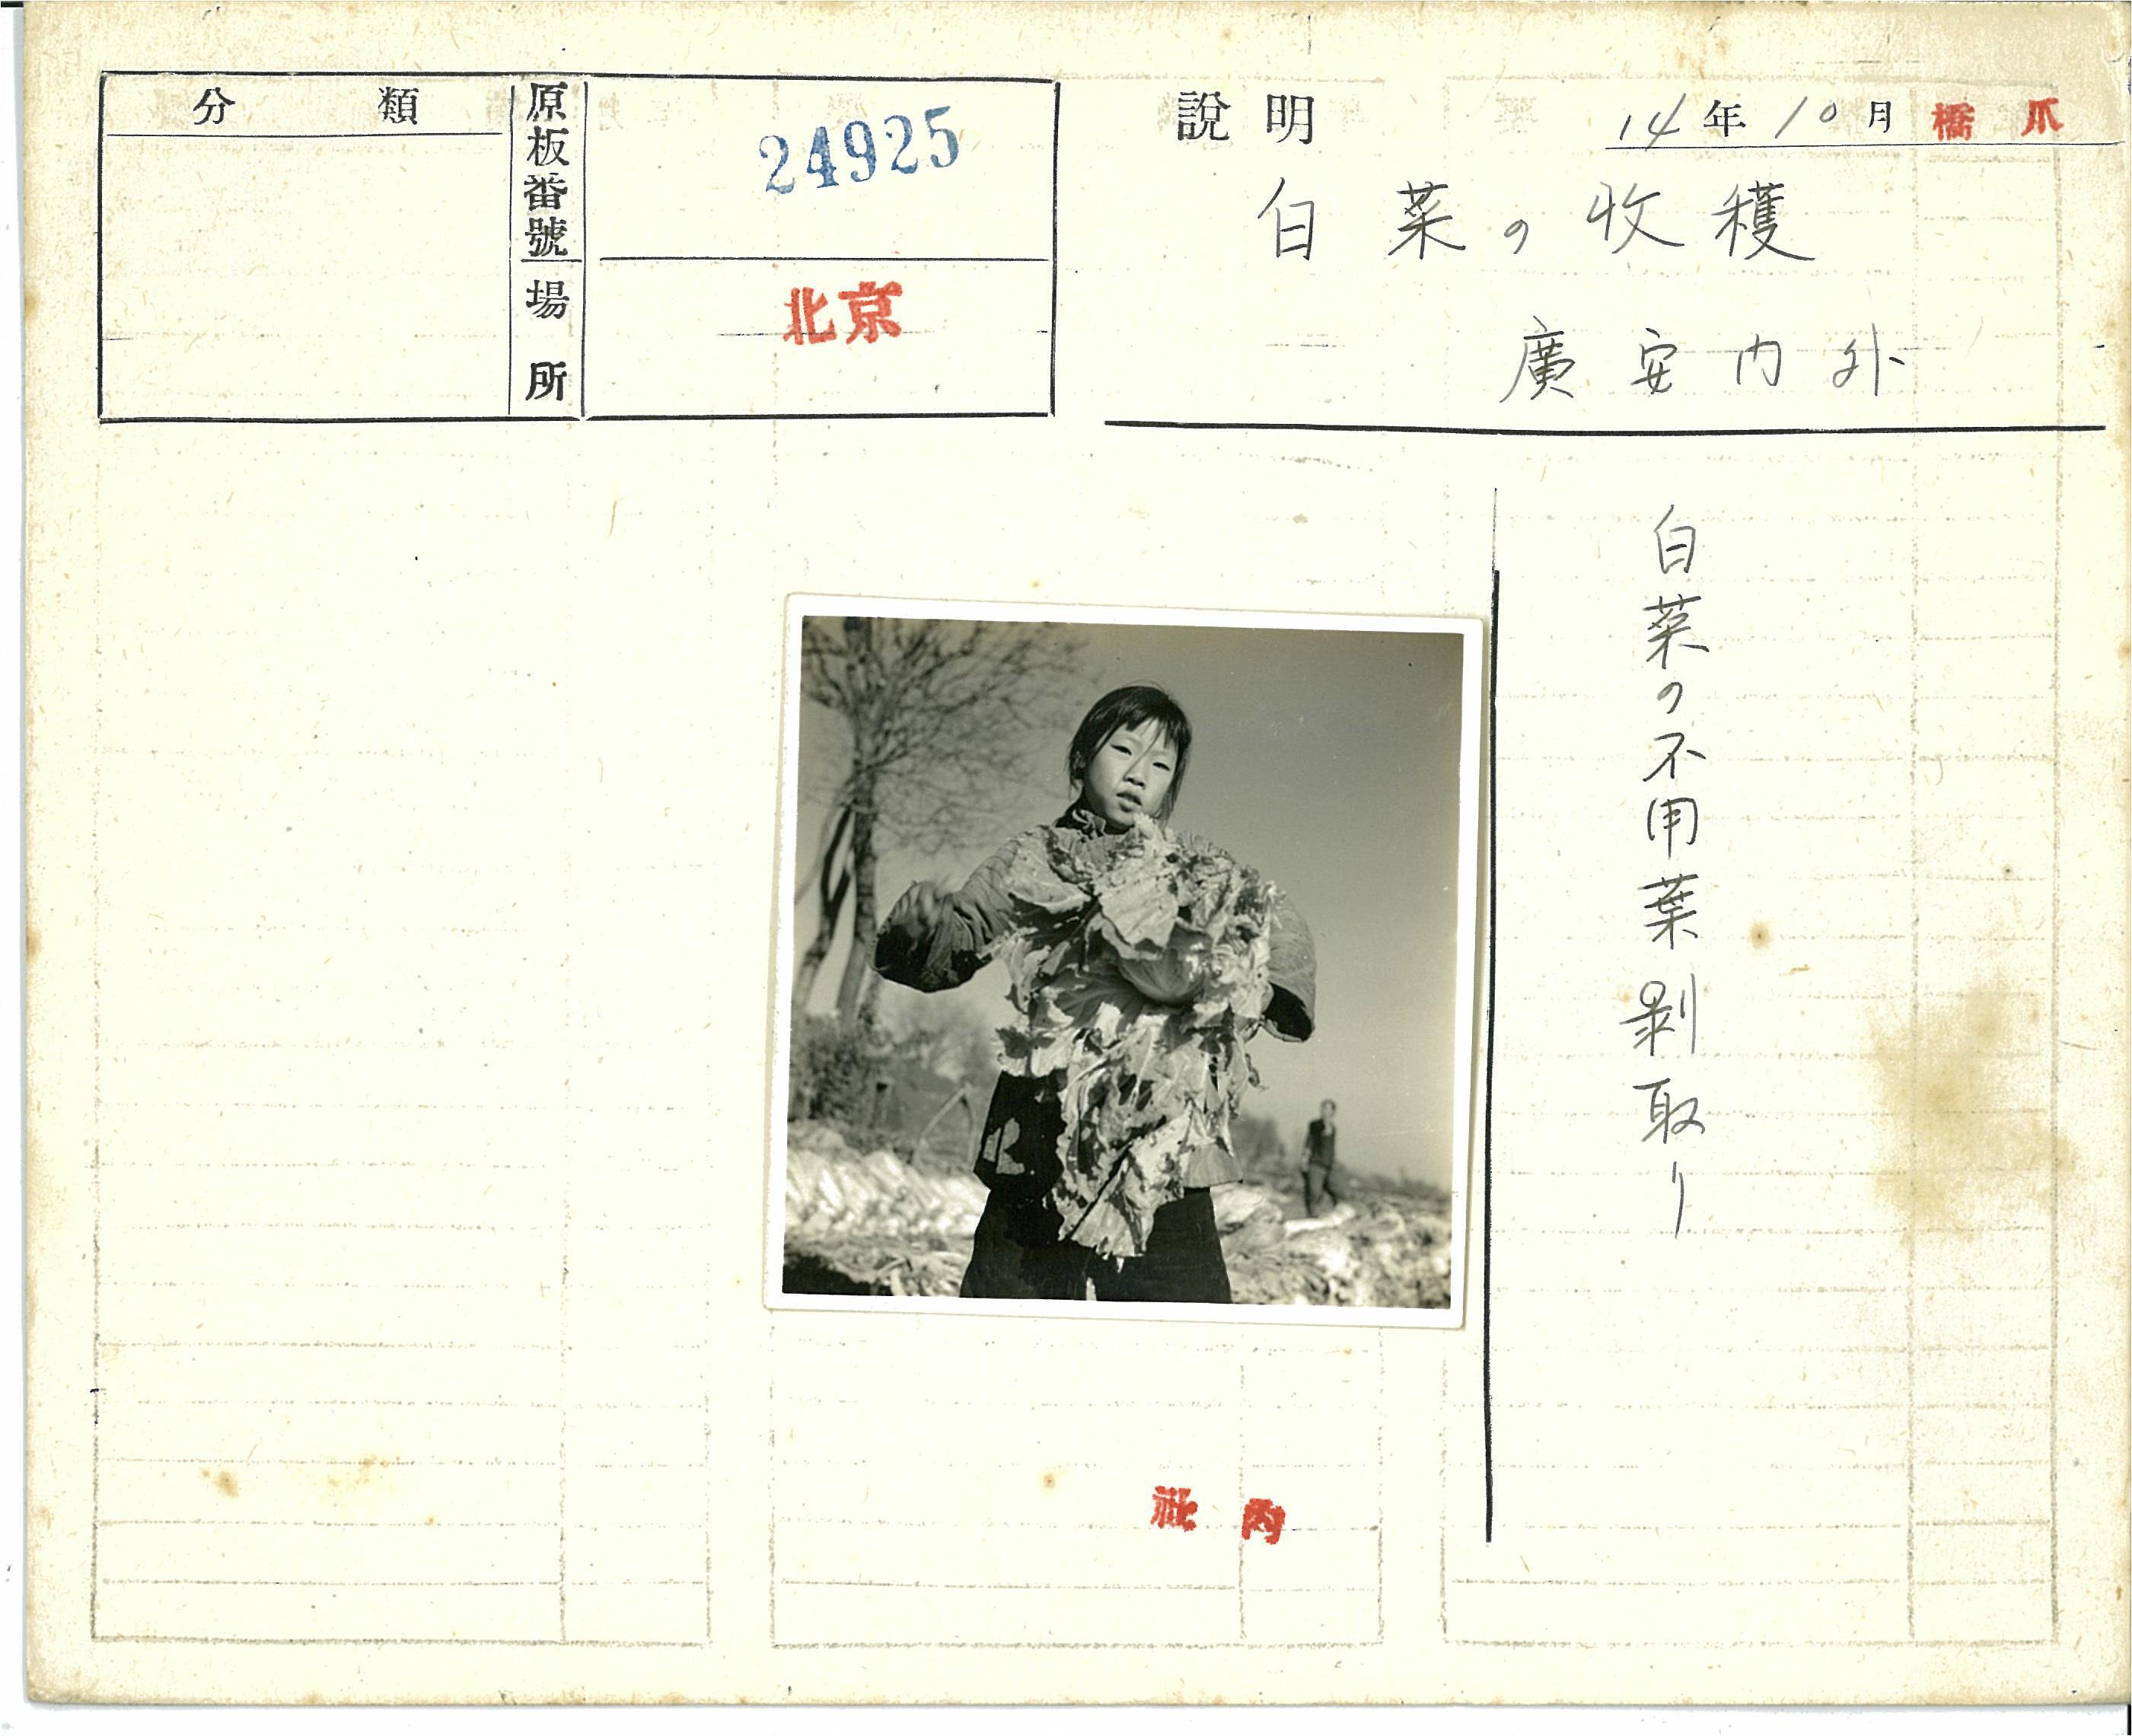 分類
原板番號
24925
場所
北京
説明
14年10月 橋爪
白菜の收穫
廣安内外
白菜の不用葉剥取り
社内